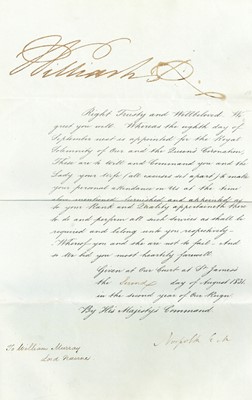 William R.
Right Trusty and Wellbeloved. We
greet you well. Whereas the eighth day of
September next is appointed for the Royal
Solemnity of Our and the Queens Coronation,
These are to Will and Command you and the
Lady your Wife (all excuses set apart) to make
your personal attendance on Us at the time
above mentioned furnished and appointed as
to your Rank and Quality appertaineth there
to do and perform all such services as shall be
required and belong unto you respectively
Whereof you and she are not to fail. And
so We bid you most heartily farewell
Given at Our Court at St James's
the Second day of August 1831.
in the second year of Our Reign
By His Majestys Command.
Norfolk E. M.
To William Murray
Lord